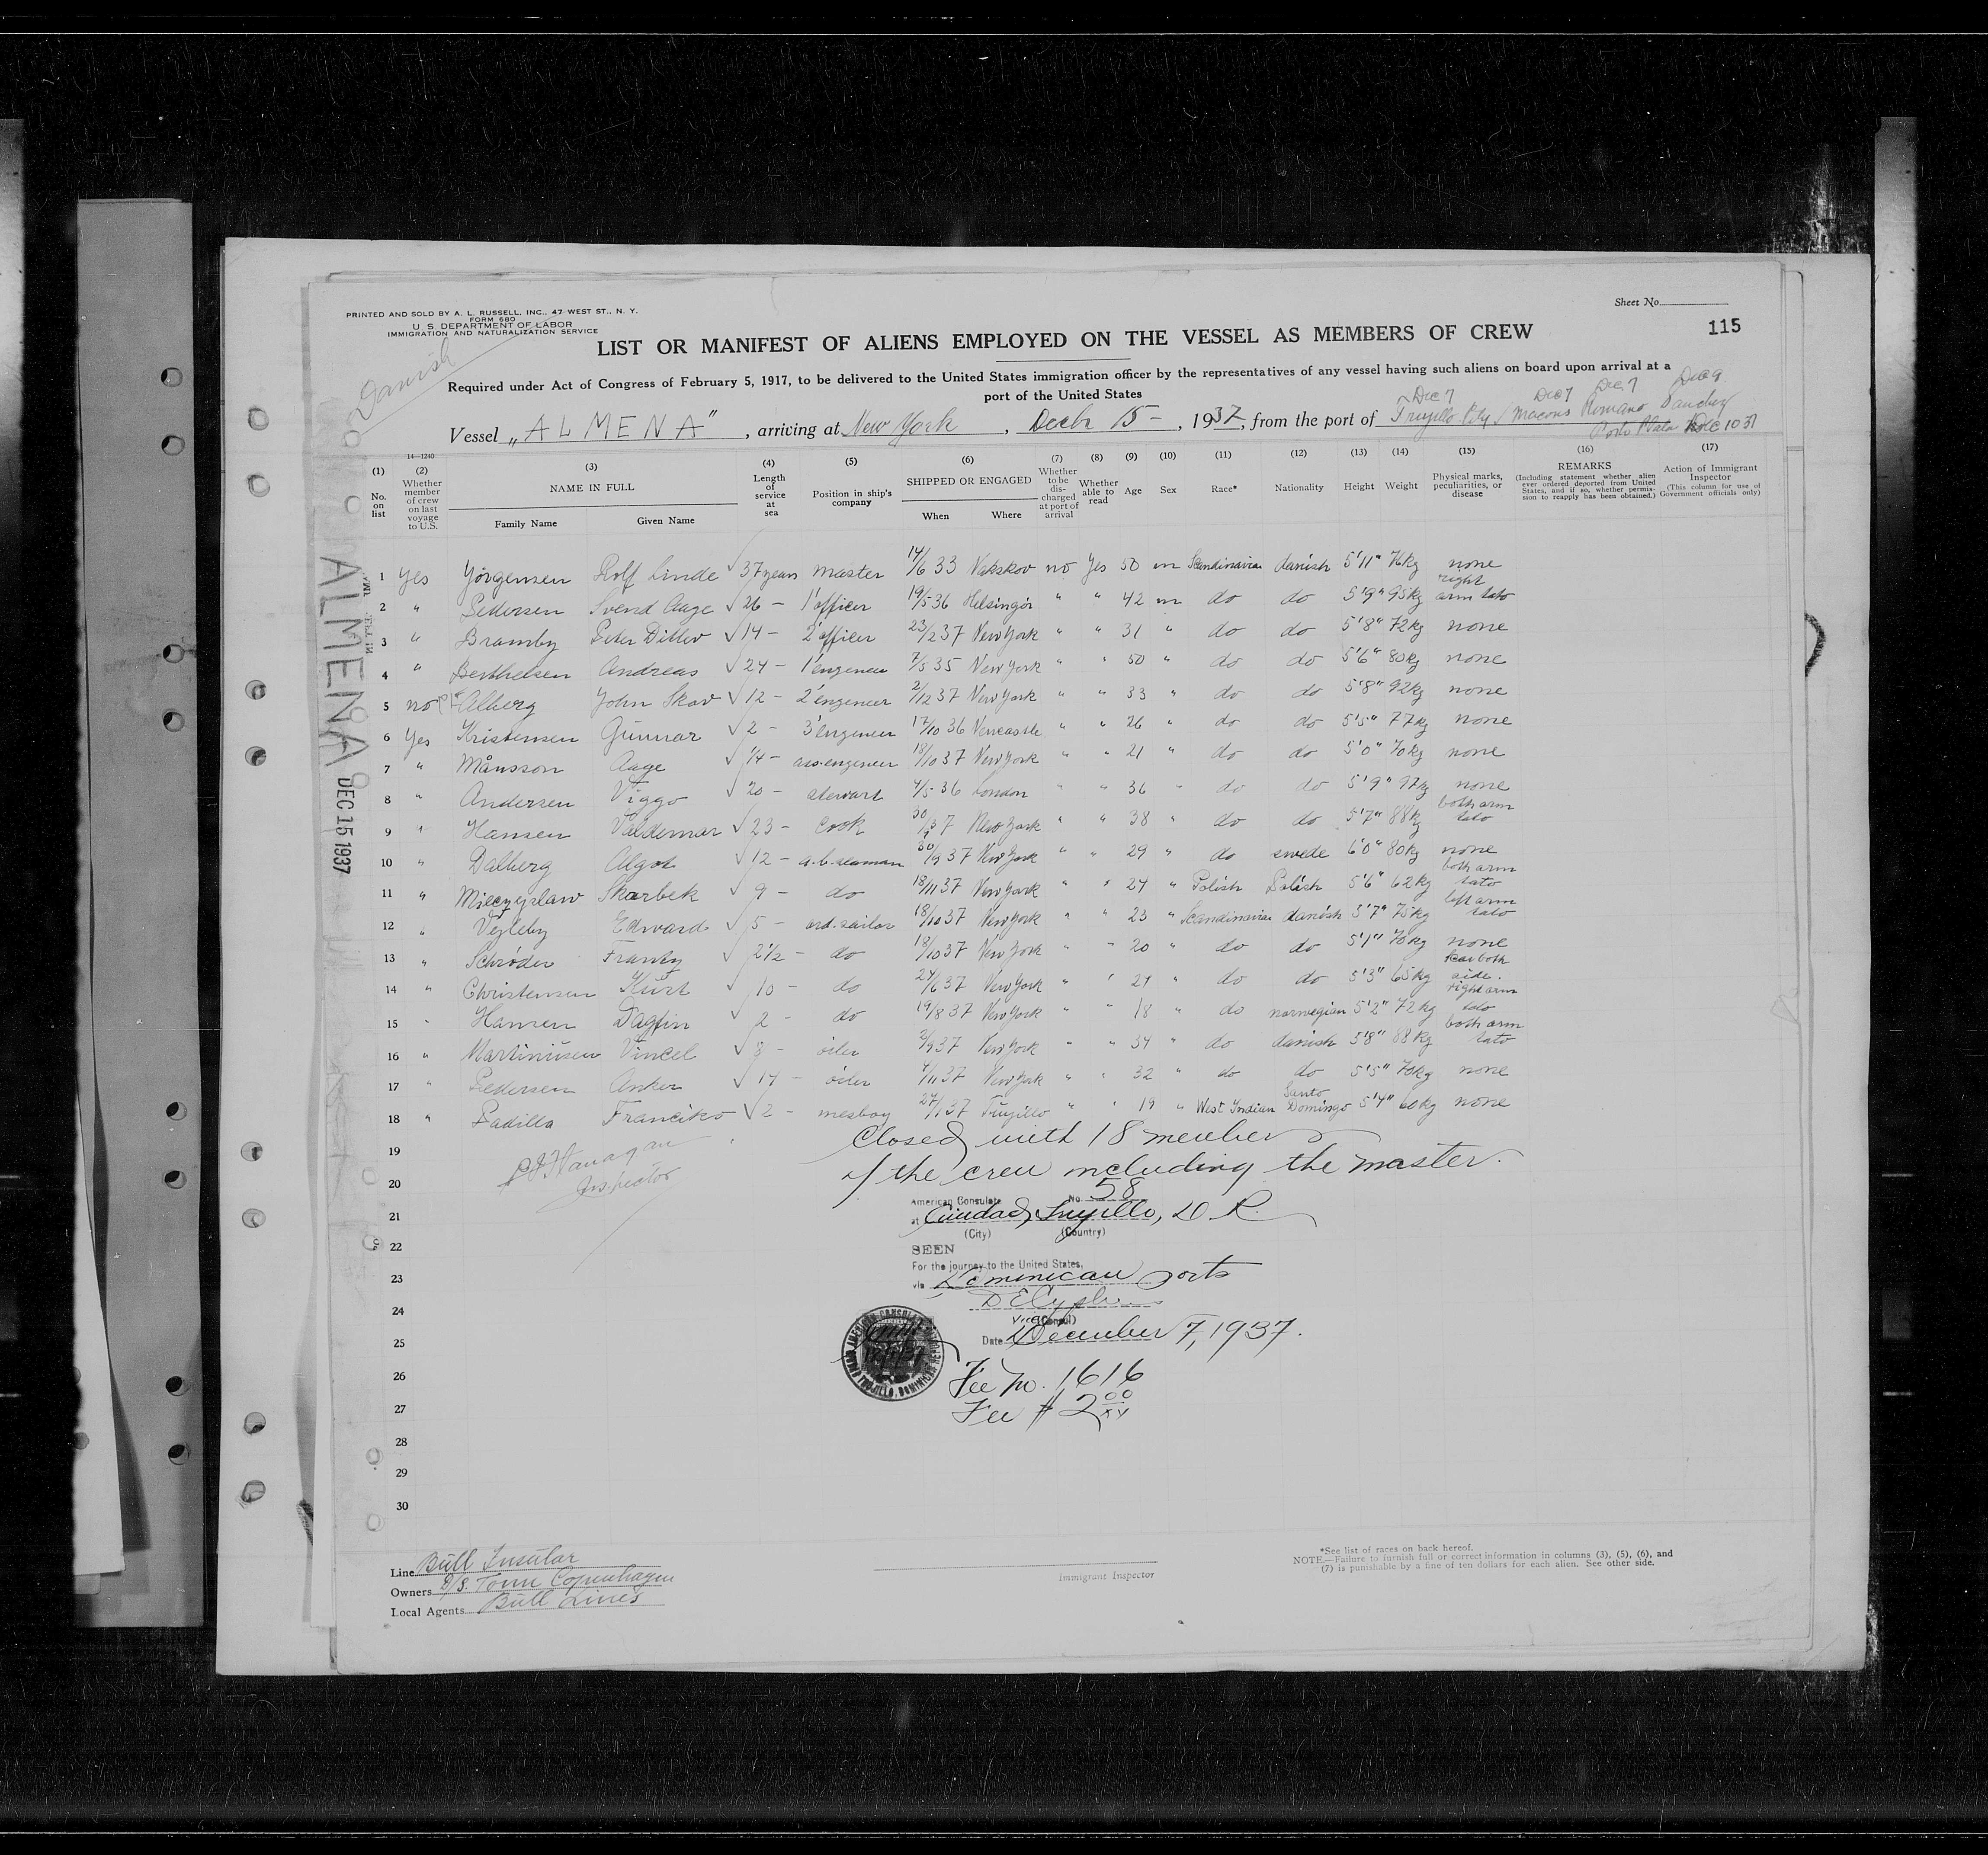 Sheet No.
PRINTED AND SOLD BY A. L. RUSSELL, INC., 47 WEST ST., N. Y.
FORM 680
U. S. DEPARTMENT OF LABOR
IMMIGRATION AND NATURALIZATION SERVICE
115
Danish
LIST OR MANIFEST OF ALIENS EMPLOYED ON THE VESSEL AS MEMBERS OF CREW
Required under Act of Congress of February 5, 1917, to be delivered to the United States immigration officer by the representatives of any vessel having such aliens on board upon arrival at a
port of the United States
Dec 7 Dec 7 Dec 7 Dec 9
Vessel „ALMENA", arriving at New York, Decbr 15 -, 1937, from the port of Trujillo City / Macoris Romano Sanchez
Porto Plata Dec 10 37
14—1240
(1) (2) (3) (4) (5) (6) (7) (8) (9) (10) (11) (12) (13) (14) (15) (16) (17)
No. on list
Whether member of crew on last voyage to U.S.
NAME IN FULL
Family Name Given Name
Length of service at sea
Position in ship's company
SHIPPED OR ENGAGED
When Where
Whether to be discharged at port of arrival
Whether able to read
Age Sex Race* Nationality Height Weight
Physical marks, peculiarities, or disease
REMARKS
(Including statement whether alien ever ordered deported from United States, and if so, whether permission to reapply has been obtained.)
Action of Immigrant Inspector
(This column for use of Government officials only)
1 Yes Yörgensen Rolf Linde √ 37 years master 14/6 33 Nakskov no Yes 50 m Scandinavian danish 5'11" 76kg none
2 " Pedersen Svend Aage √ 26 - 1'officer 19/5 36 Helsingör " " 42 m do do 5'9" 95kg right arm tato
3 " Bramby Peter Ditlev √ 14 - 2'officer 23/2 37 New York " " 31 " do do 5'8" 72kg none
4 " Berthelsen Andreas √ 24 - 1'engeneer 7/5 35 New York " " 50 " do do 5'6" 80kg none
5 no Alberg John Skov √ 12 - 2'engeneer 2/12 37 New York " " 33 " do do 5'8" 92kg none
6 Yes Kristensen Gunnar √ 2 - 3'engeneer 17/10 36 Newcastle " " 26 " do do 5'5" 77kg none
7 " Månsson Aage √ 14 - ass.engeneer 18/10 37 New York " " 21 " do do 5'0" 70kg none
8 " Andersen Viggo √ 20 - stewart 4/5 36 London " " 36 " do do 5'9" 97kg none
9 " Hansen Valdemar √ 23 - cook 30/9 37 New York " " 38 " do do 5'7" 88kg both arm tato
10 " Dalberg Algot √ 12 - a.b. seaman 30/9 37 New York " " 29 " do swede 6'0" 80kg none
11 " Mieczyslaw Skarbek √ 9 - do 18/11 37 New York " " 24 " Polish Polish 5'6" 62kg both arm tato
12 " Vejleby Edward √ 5 - ord. sailor 18/10 37 New York " " 23 " Scandinavian danish 5'7" 75kg left arm tato
13 " Schröder Frantz √ 2½ - do 18/10 37 New York " " 20 " do do 5'1" 70kg none
14 " Christensen Kurt √ 10 - do 24/6 37 New York " " 24 " do do 5'3" 65kg scar both side.
15 " Hansen Dagfin √ 2 - do 19/8 37 New York " " 18 " do norwegian 5'2" 72kg right arm tato
16 " Martinusen Vincel √ 8 - oiler 2/9 37 New York " " 34 " do danish 5'8" 88kg both arm tato
17 " Pedersen Anker √ 14 - oiler 4/11 37 New York " " 32 " do do 5'5" 70kg none
18 " Padilla Francisko √ 2 - mesboy 27/1 37 Trujillo " " 19 " West Indian Santo Domingo 5'4" 60kg none
19 Closed with 18 members
20 of the crew including the master.
Flanagan
Inspector
21
22
23
24
25
26
27
28
29
30
American Consulate No. 58
at Ciudad Trujillo, D R.
(City) (Country)
SEEN
For the journey to the United States,
via Dominican ports
Vice (Consul)
Date December 7, 1937.
Fee No. 1616
Fee # 2 00/xx
ALMENA
DEC 15 1937
Line Bull Insular
Owners D/S. Torm Copenhagen
Local Agents Bull Lines
Immigrant Inspector
*See list of races on back hereof.
NOTE.—Failure to furnish full or correct information in columns (3), (5), (6), and
(7) is punishable by a fine of ten dollars for each alien. See other side.